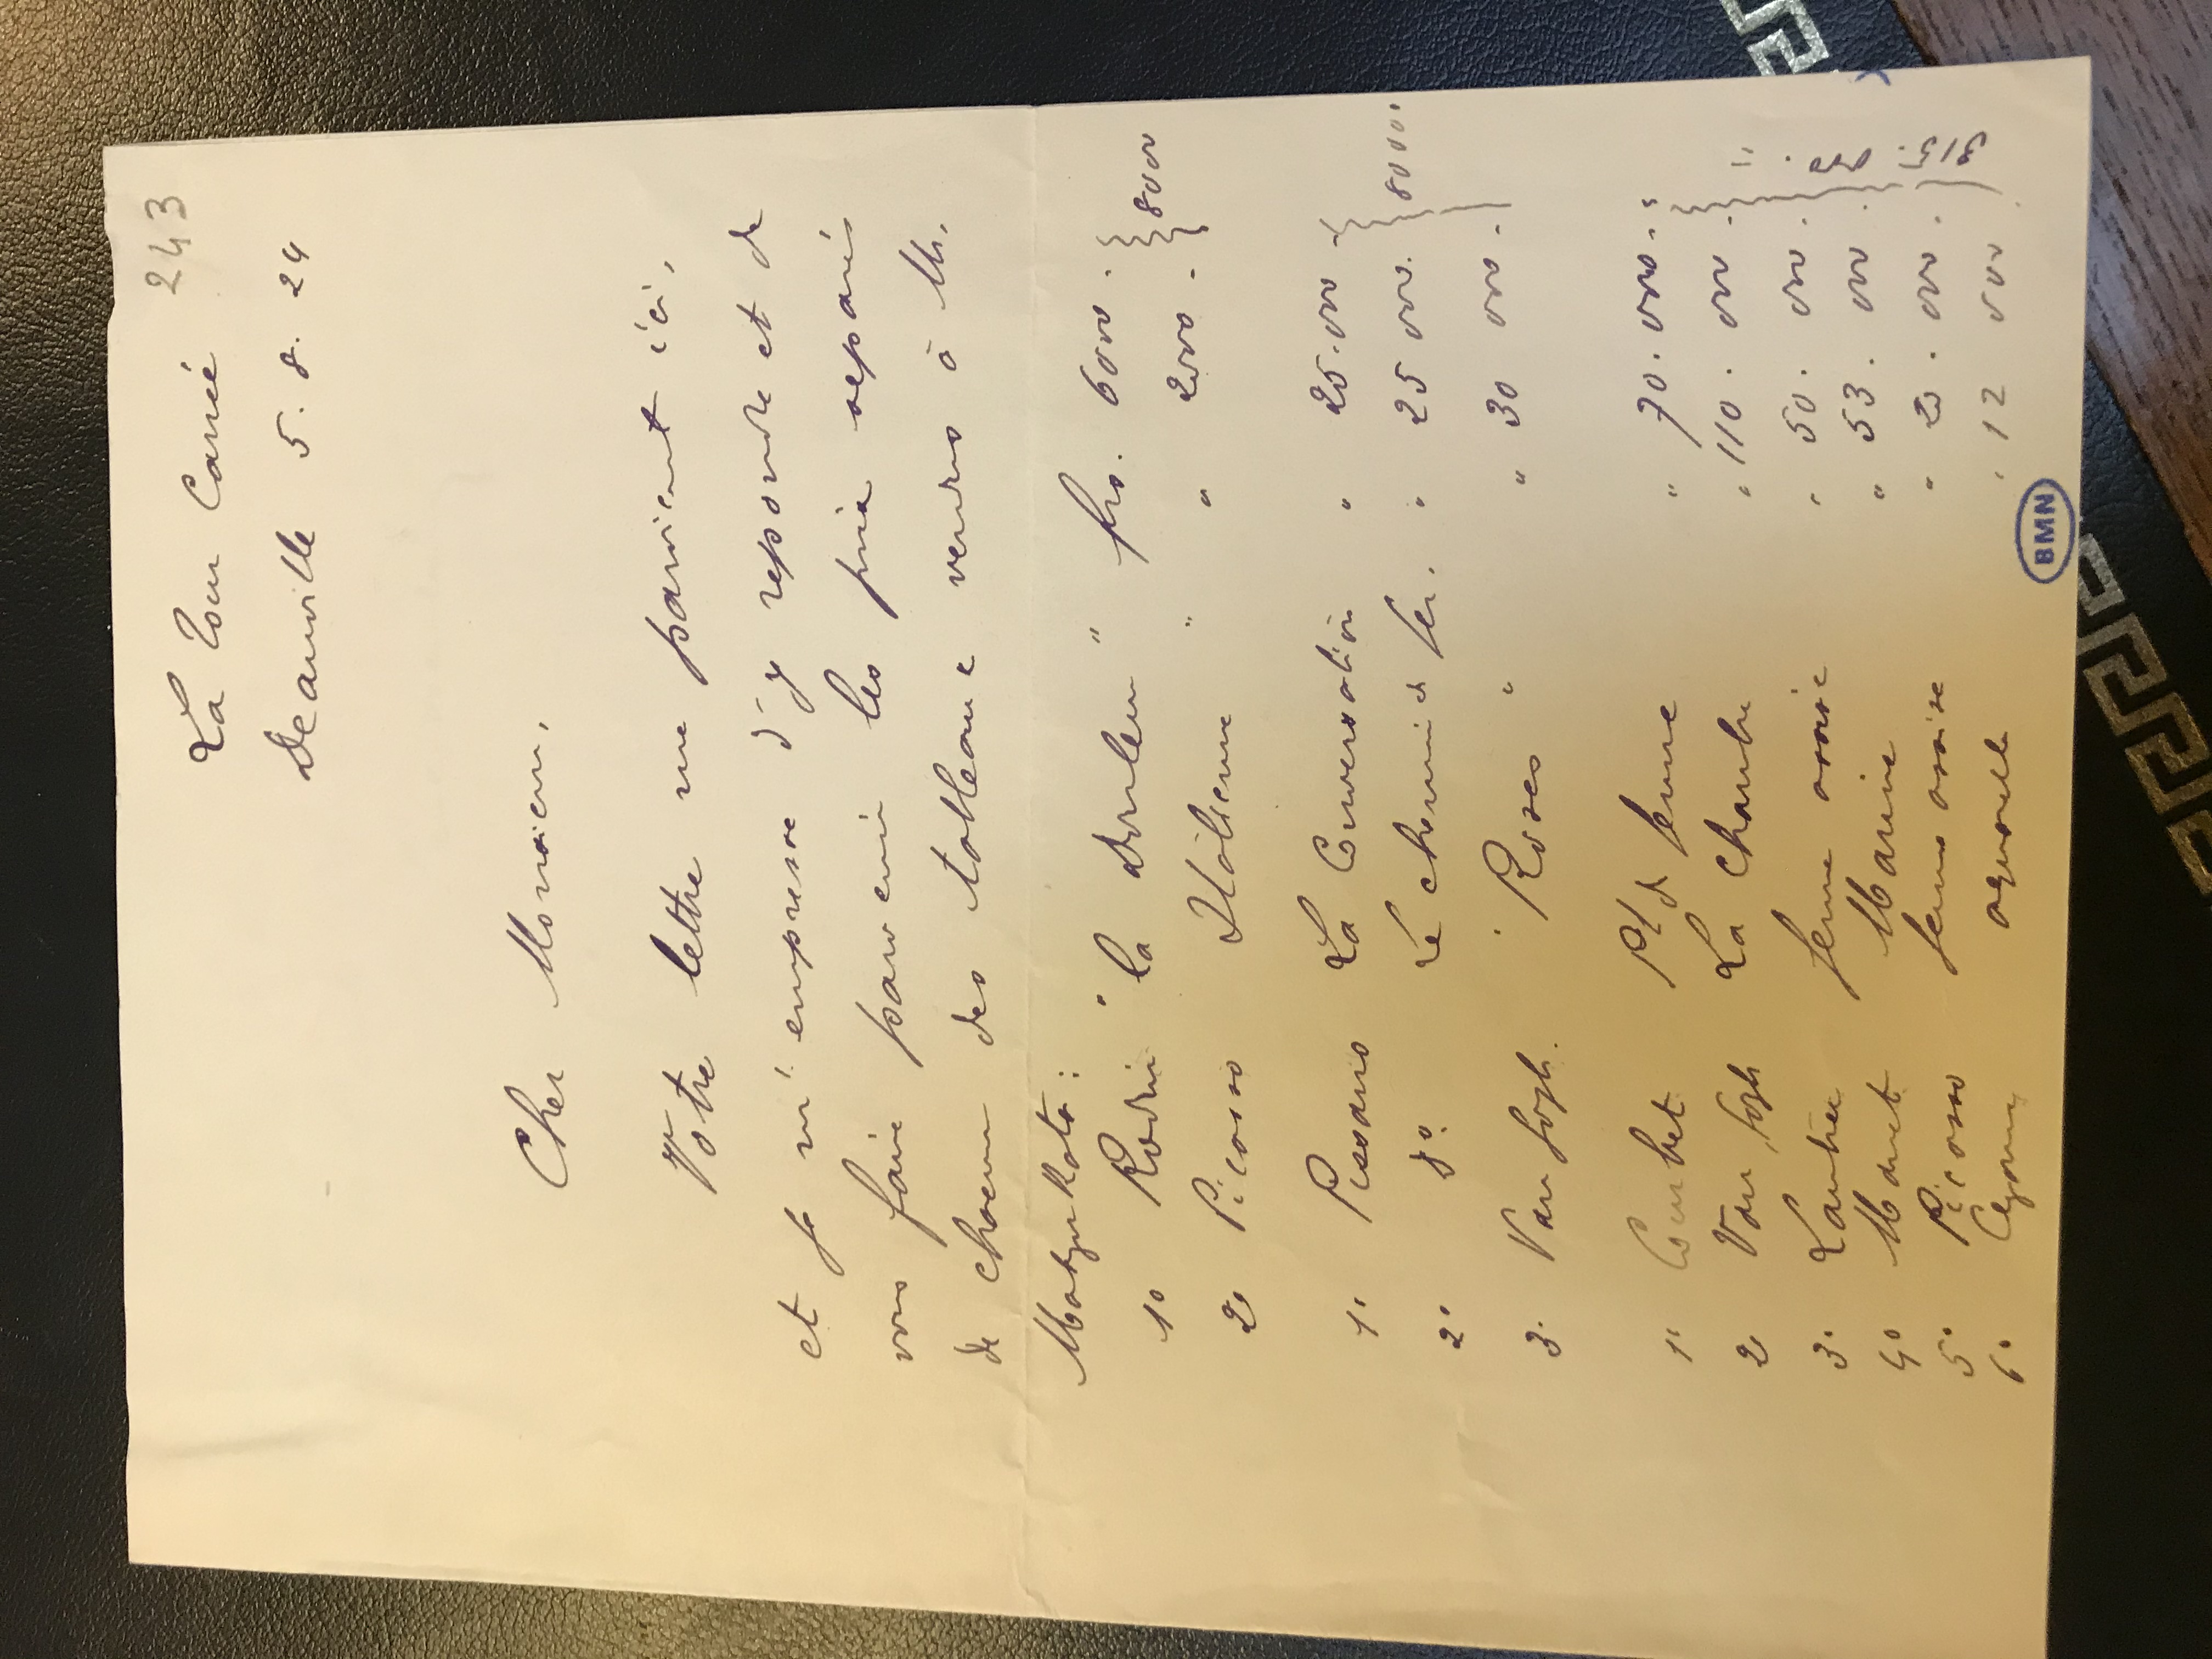 243
La Tour Carrée
Deauville 5. 8. 24
Cher Monsieur,
Votre lettre me parvient ici,
et je m'empresse d'y repondre et de
vous faire parvenir les prix separés
de chacun des tableaux vendus à M.
Matsukata:
1° Rodin "la douleur" frs. 6000. 8000
2° Picasso Italienne " " 2000.
1° Pissarro La Conversation " 25.000
2° d° Le chemin de fer. " 25 000. 80000.
3° Van Gogh. Roses " " 30 000.
1° Courbet Pt de femme " 70.000.
2° Van Gogh La Chambre " 110.000.
3° Lautrec femme assise " 50.000.
4° Manet Marine " 53.000.
5° Picasso femme assise " 000.
6° Cézanne aquarelle " 12 000
BMN